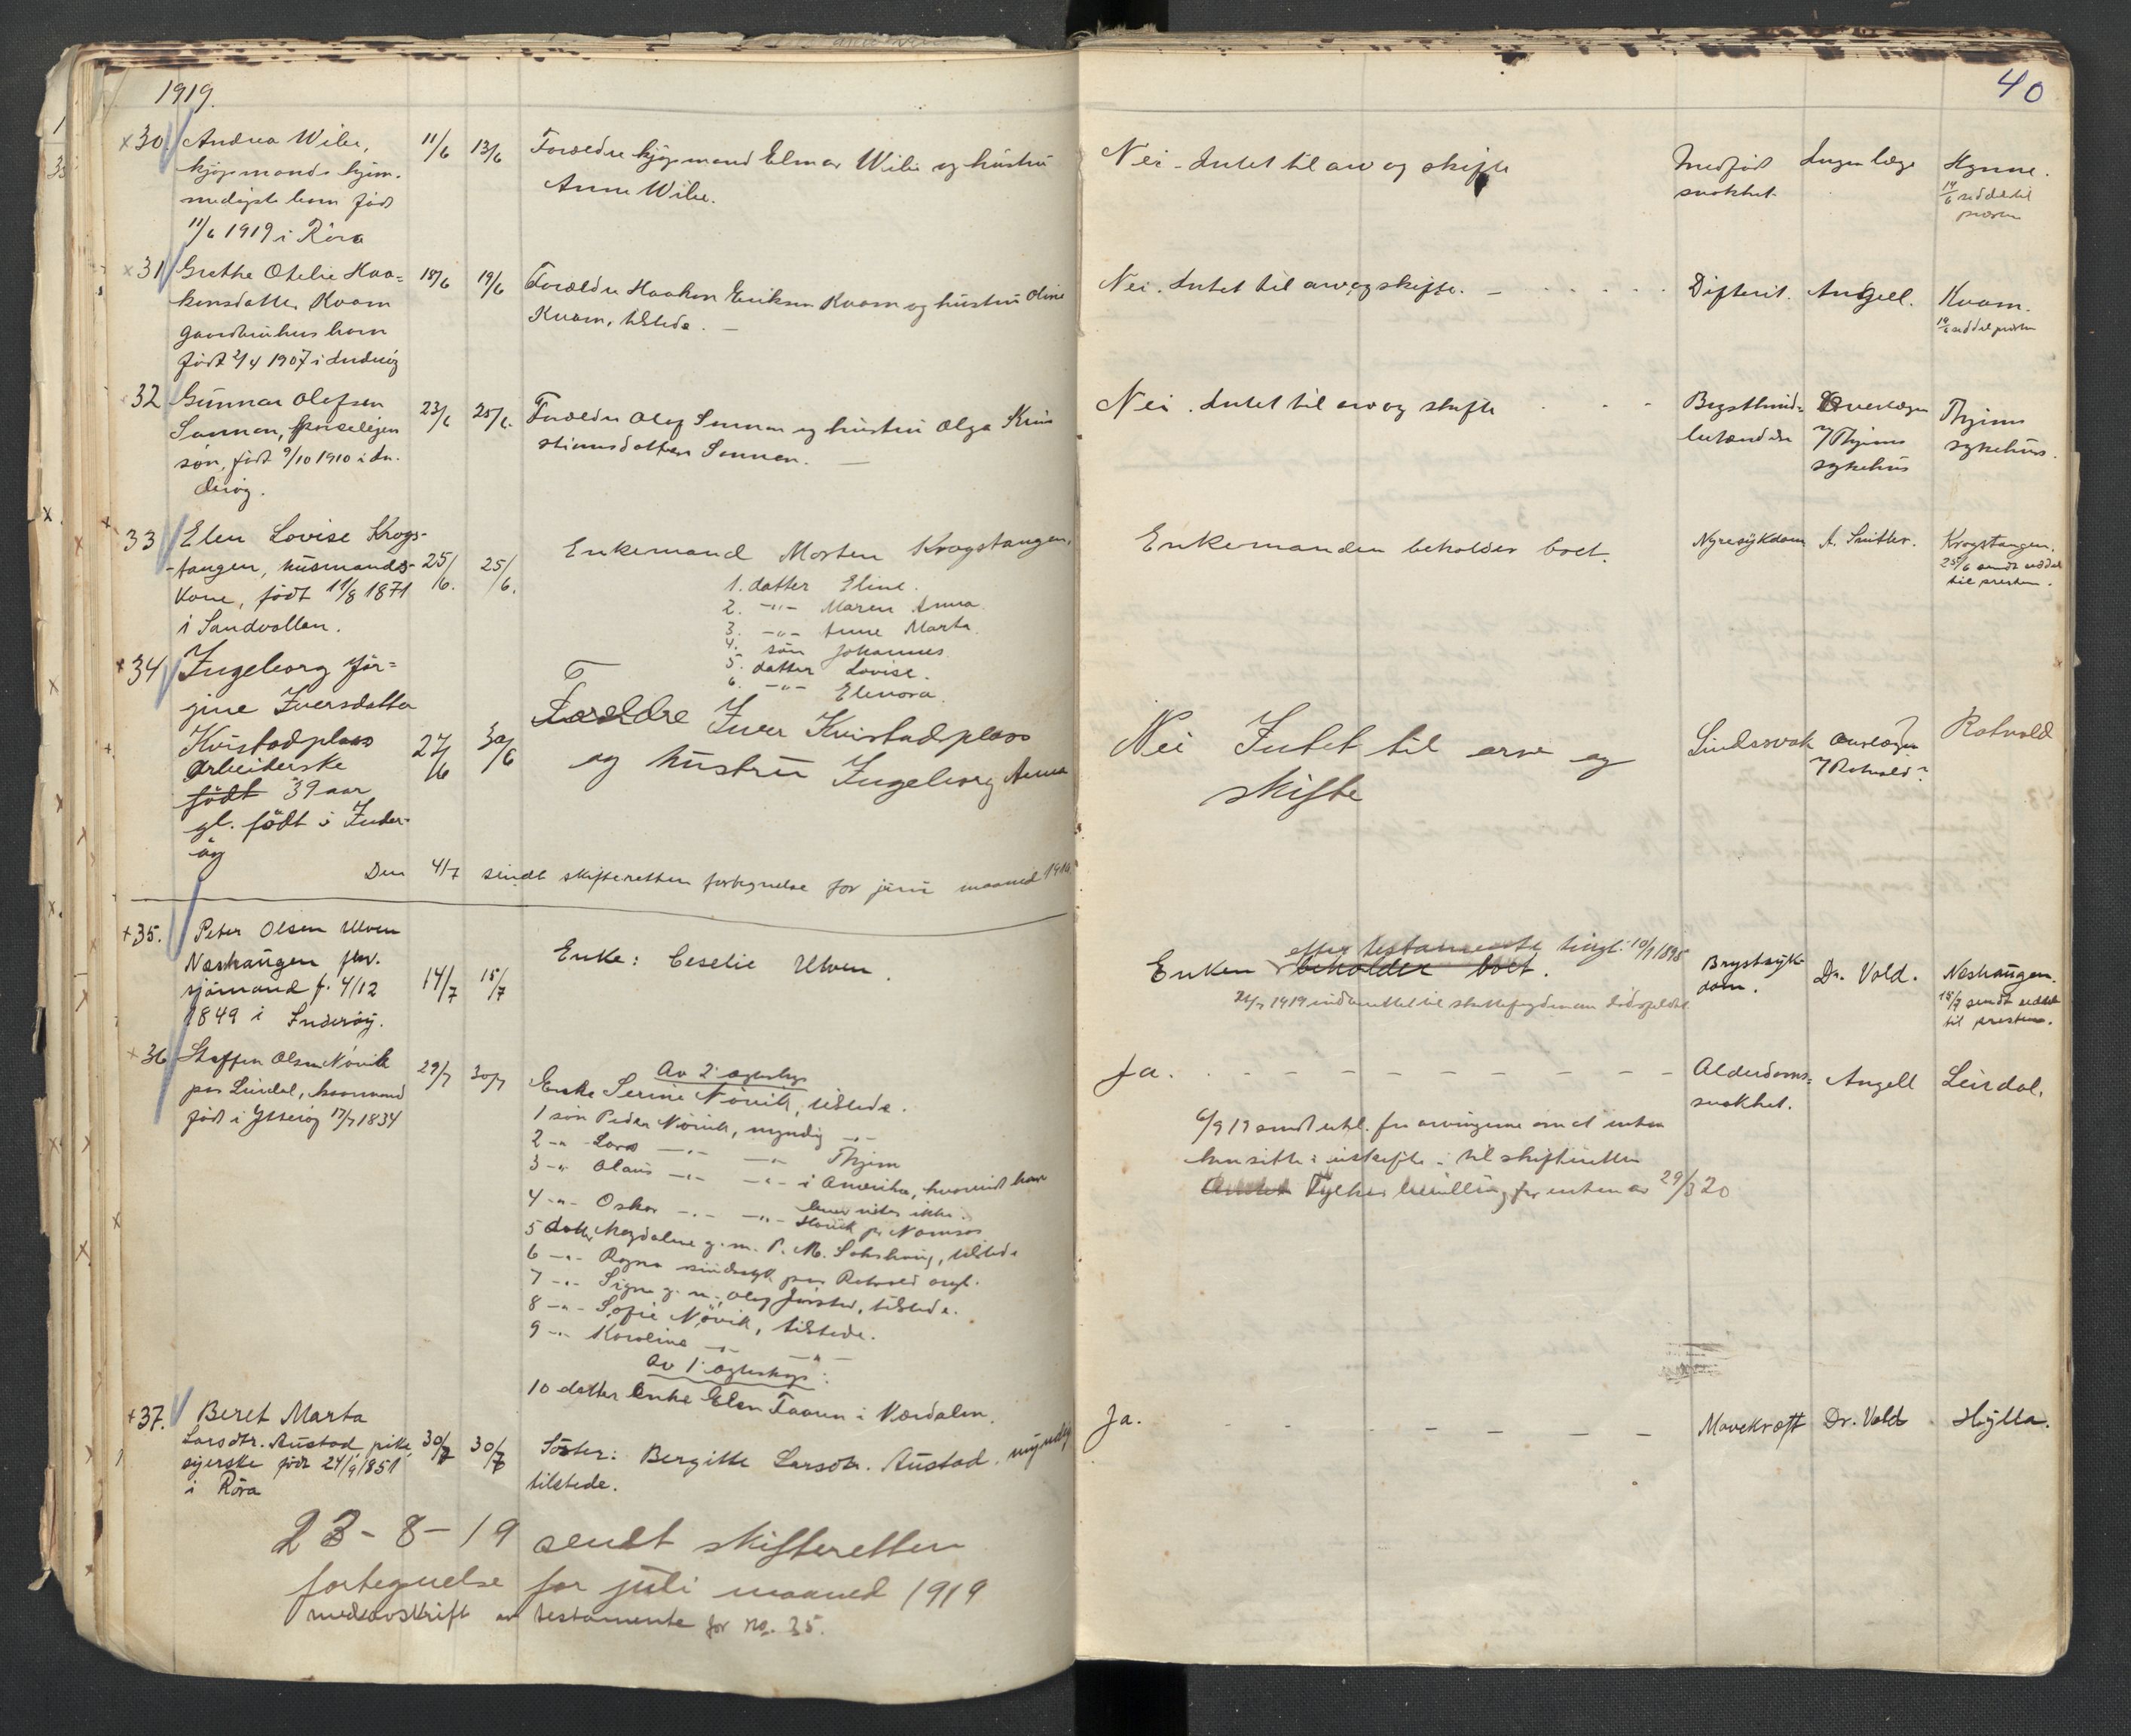 1919.
40
30. Andrea Wibe,
kjøpmands hjem-
medøpt barn født
11/6 1919 i Røra
11/6
13/6
Forældre kjøpmand Elmar Wibe og hustru
Anne Wibe.
Nei - Intet til arv og skifte
Medfødt
svakhet.
Ingen læge
Hynne.
14/6 seddel til
presten
31 Grethe Otelie Haa-
konsdatter Kvam
gaardbruker barn
født 2/4 1907 i Inderøy
18/6
19/6
Forældre Haakon Eriksen Kvam og hustru Oline
Kvam, tilstede. —
Nei. Intet til arv og skifte. —
Difterit.
Angell.
Kvam.
19/6 seddel presten
32 Gunnar Olafsen
Sannan, parselejer
søn, født 9/10 1910 i In-
derøy.
23/6
25/6.
Forældre Olaf Sannan og hustru Olga Kris
stiansdatter Sannan. —
Nei. Intet til arv og skifte
Brysthind-
betændelse
Overlægen
v/ Thjems
sykehus
Thjems
sykehus.
33 Elen Lovise Krogs-
tangen, husmands-
kone, født 11/8 1871
i Sandvollan.
25/6.
25/6.
Enkemand Morten Krogstangen,
1. datter Eline.
2. -"- Maren Anna.
3. -"- Anne Marta.
4. søn Johannes.
5. datter Lovise.
6. -"- Elenora.
Enkemanden beholder boet.
Nyresykdom
A. Smitler.
Krogstangen.
25/6 sendt seddel
til presten.
34 Ingeborg Jør-
gine Iversdatter
Kvistadplass
arbeiderske
født 39 aar
gl. født i Inder-
øy
27/6
30/6
Foreldre Iver Kvistadplass
og hustru Ingeborg Anna
Nei Intet til arv og
skifte
Sindssvak
overlægen
v/ Rotvold?
Rotvold
Den 4/7 sendt skifteretten fortegnelse for juni maaned 1919
35. Peter Olsen Ulven
Neshaugen fhv.
sjømand f. 4/12
1849 i Inderøy.
14/7
15/7
Enke: Ceselie Ulven.
efter testamente tingl. 10/9 1895
Enken beholder boet.
24/7 1919 indberettet til skattefogden om dødsfaldet.
Brystsyk-
dom.
Dr. Vold.
Neshaugen.
15/7 sendt seddel
til presten.
36 Steffen Olsen Nøvik
paa Leirdal, kaarmand
født i Ytterøy 17/7 1834
29/7
30/7
Av 2. egteskap
Enke Serine Nøvik, tilstede.
1 søn Peder Nøvik, myndig -"-
2 -"- Lars -"- -"- Thjem
3 -"- Olaus -"- -"- i Amerika, hvorvidt han
lever vites ikke.
4 -"- Oskar -"- -"- Høvik pr Namsos
5 datter Magdalene g. m. P. M. Sakshaug, tilstede
6 -"- Ragna sindssyk paa Rotvold asyl.
7 -"- Signe g. m. Olaf Jørstad, tilstede.
8 -"- Sofie Nøvik, tilstede.
9 -"- Karoline -"- -"-
Av 1. egteskap:
10 datter enke Elen Faaren i Værdalen.
Ja.
6/9 19 sendt erkl. fra arvingerne om at enken
kan sitte i uskifte - til skifteretten
Fylkes bevilling for enken av 29/3 20
Alderdoms-
svakhet.
Angell
Leirdal.
37. Beret Marta
Larsdtr. Austad, pike,
syerske født 24/9 1851
i Røra
30/7
30/7
Søster: Bergitte Larsdtr. Austad. myndig
tilstede.
Ja.
Mavekræft
Dr. Vold
Hylla.
23-8-19 sendt skifteretten
fortegnelse for juli maaned 1919
med avskrift av testamente for no. 35.